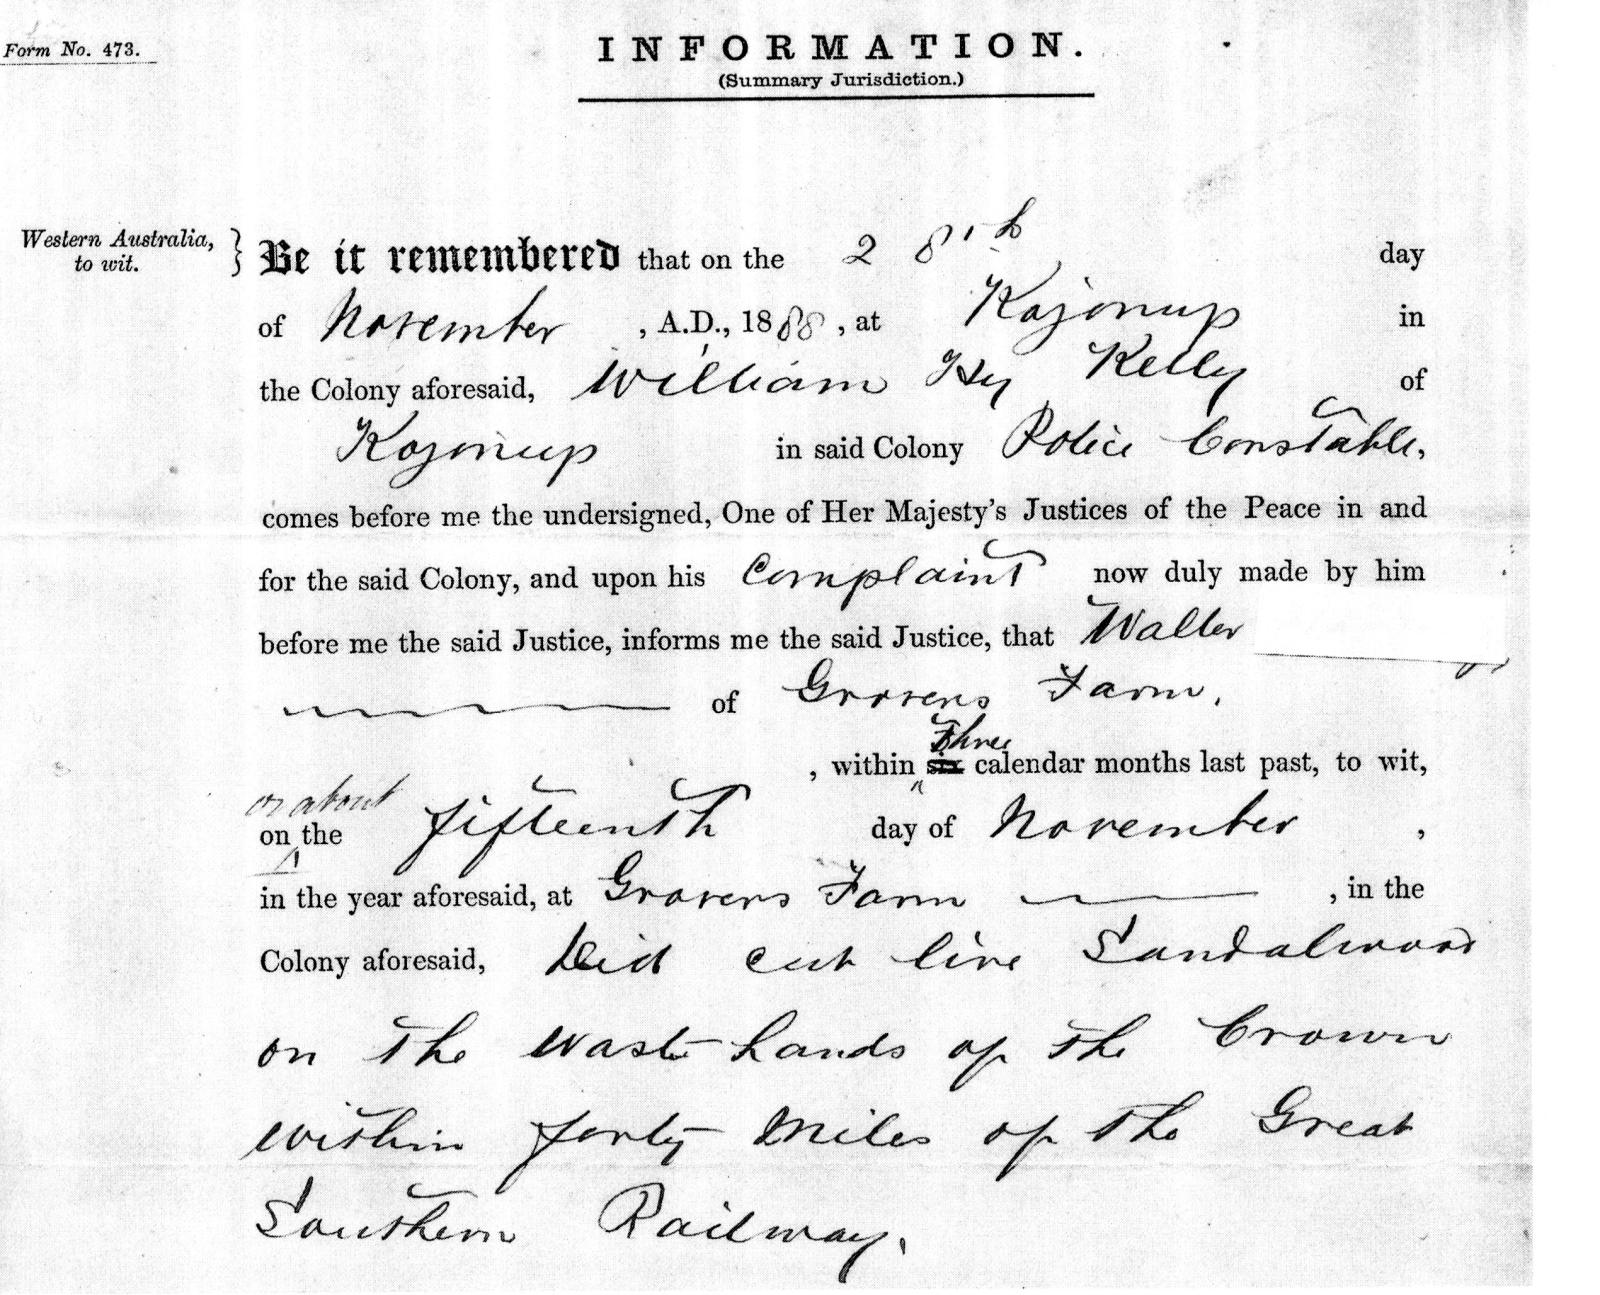 Form No. 473.
INFORMATION.
(Summary Jurisdiction.)
Western Australia, to wit. } Be it remembered that on the 28th day
of November , A.D., 1888 , at Kojonup in
the Colony aforesaid, William Hy Kelly of
Kojonup in said Colony Police Constable,
comes before me the undersigned, One of Her Majesty's Justices of the Peace in and
for the said Colony, and upon his Complaint now duly made by him
before me the said Justice, informs me the said Justice, that Walter
of Grovers Farm,
, within six Three calendar months last past, to wit,
on or about the fifteenth day of November ,
in the year aforesaid, at Grovers Farm , in the
Colony aforesaid, Did cut live Sandalwood
on the Waste Lands of the Crown
within forty Miles of the Great
Southern Railway.